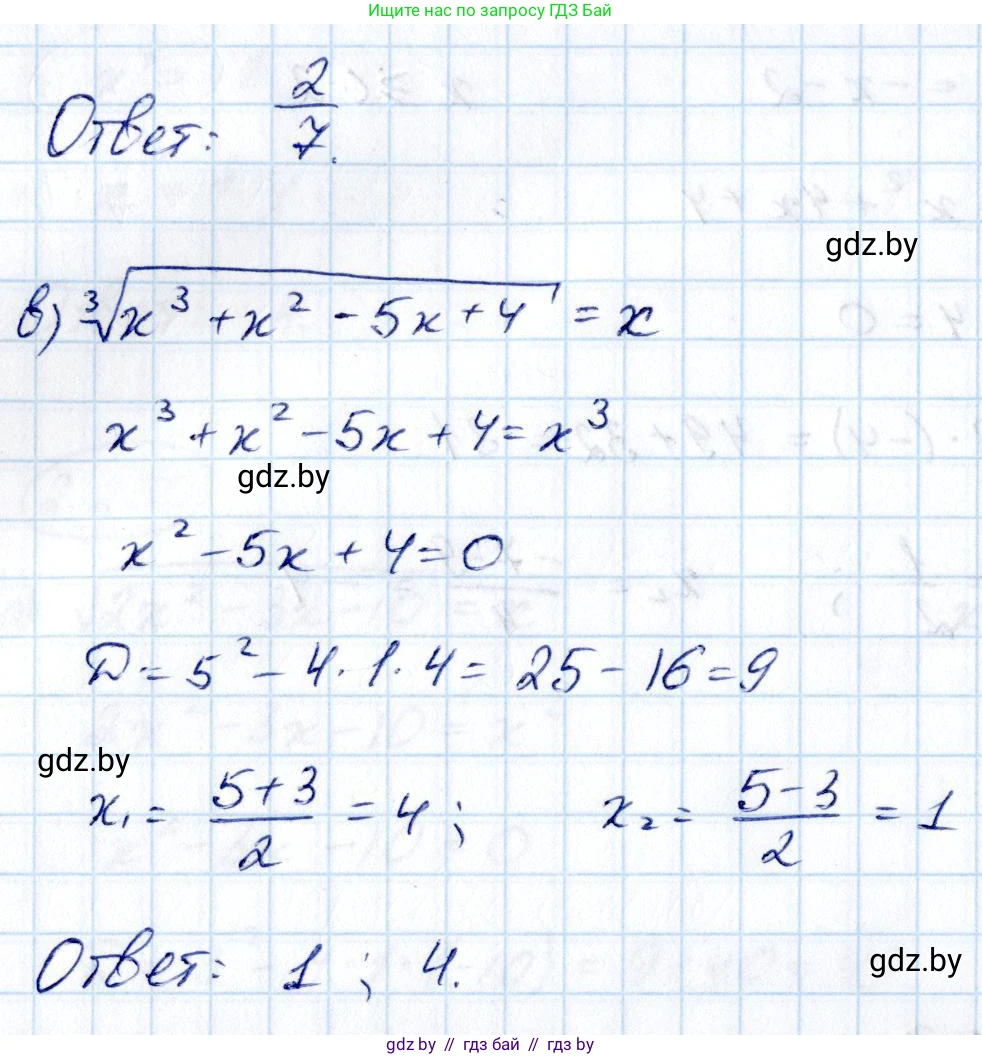 Ищите нас по запросу ГДЗ Бай
Ответ: 2/7.
gdz.by
в) ∛(x³ + x² - 5x + 4) = x
x³ + x² - 5x + 4 = x³
gdz.by
x² - 5x + 4 = 0
D = 5² - 4 · 1 · 4 = 25 - 16 = 9
gdz.by
x₁ = (5+3)/2 = 4 ; x₂ = (5-3)/2 = 1
Ответ: 1 ; 4.
gdz.by
gdz.by // гдз бай // гдз by